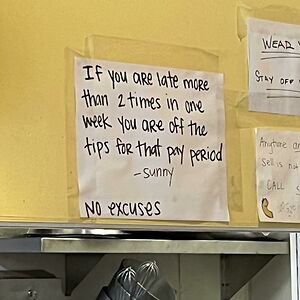 If you are late more
than 2 times in one
week you are off the
tips for that pay period
-sunny
No excuses
WEAR
STAY OFF
Anytime an
Sell is not
CALL